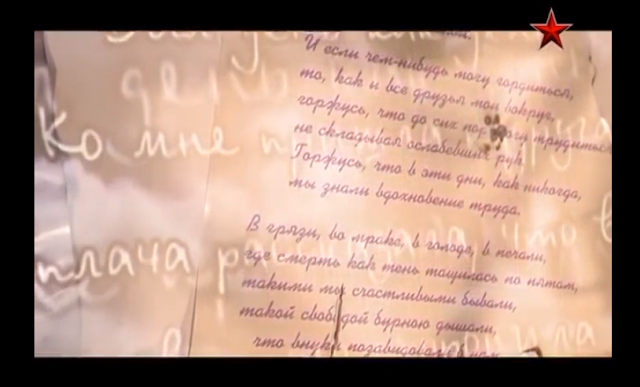 И если чем-нибудь могу гордиться,
то, как и все друзья мои вокруг,
горжусь, что до сих пор могу трудиться,
не складывая ослабевших рук.
Горжусь, что в эти дни, как никогда,
мы знали вдохновение труда.
В грязи, во мраке, в голоде, в печали,
где смерть как тень тащилась по пятам,
такими мы счастливыми бывали,
такой свободой бурною дышали,
что внуки позавидовали б нам.
день
Ко мне пришла подруга
плача рассказала что в